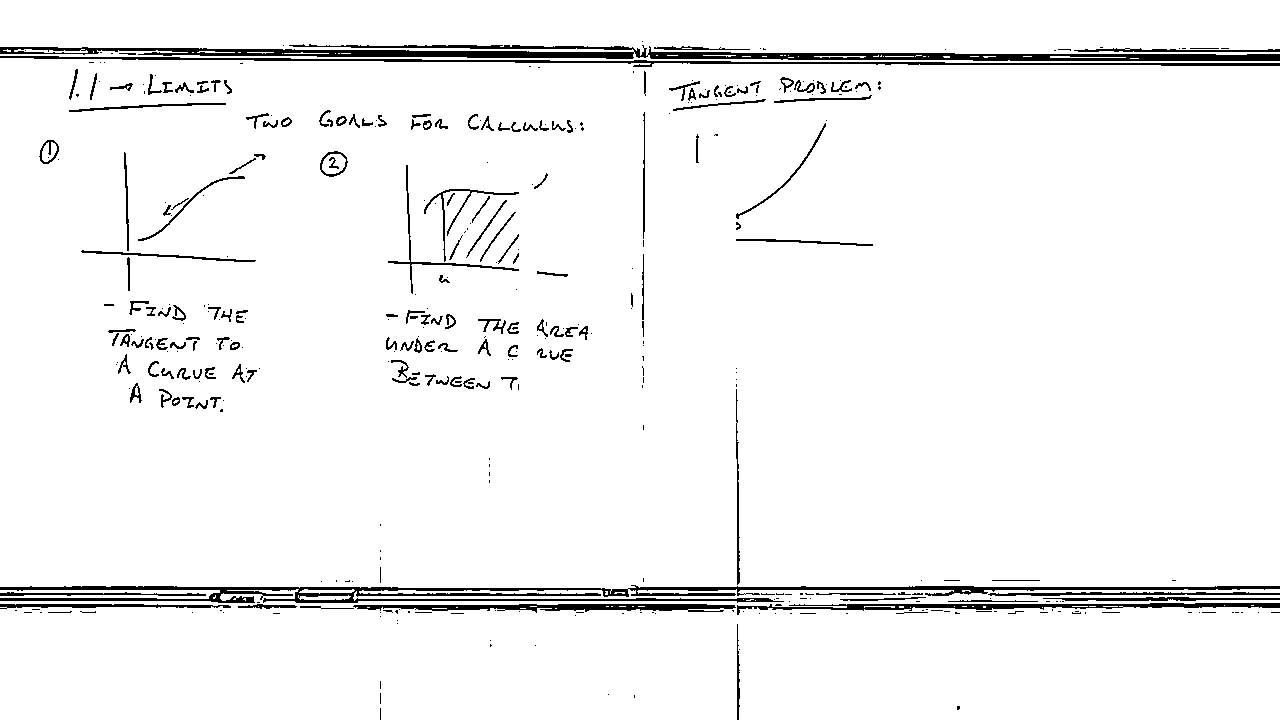 1.1 → LIMITS
TWO GOALS FOR CALCULUS:
①
- FIND THE
TANGENT TO
A CURVE AT
A POINT.
②
a
- FIND THE AREA
UNDER A C RUE
BETWEEN
TANGENT PROBLEM: